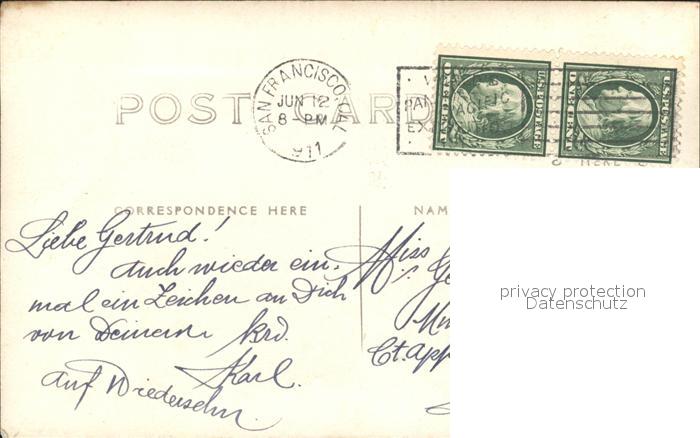 POST CARD
SAN FRANCISCO, CAL.
JUN 12
8-PM
1911
PACIFIC
U.S. POSTAGE
ONE CENT
U.S. POSTAGE
ONE CENT
HERE
CORRESPONDENCE HERE
NAM
Liebe Gertrud!
auch wieder ein-
mal ein Zeichen an Dich
von Deinem Brd.
Karl.
auf Wiedersehn.
Miss
Ct. App
privacy protection
Datenschutz